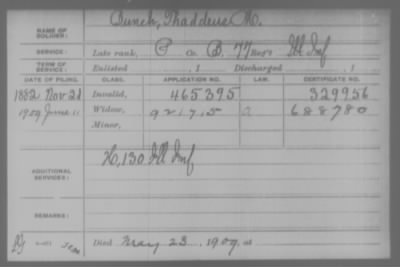 NAME OF SOLDIER: Bunch, Thaddeus M.
SERVICE: Late rank, P Co. B, 77 Reg't Ill Inf
TERM OF SERVICE: Enlisted , 1 Discharged , 1
DATE OF FILING. CLASS. APPLICATION NO. LAW. CERTIFICATE NO.
1882 Nov 21 Invalid, 465395 329956
1909 June 11 Widow, 921715 688780
Minor,
ADDITIONAL SERVICES: K, 130 Ill Inf
REMARKS:
Died May 23, 1909, at